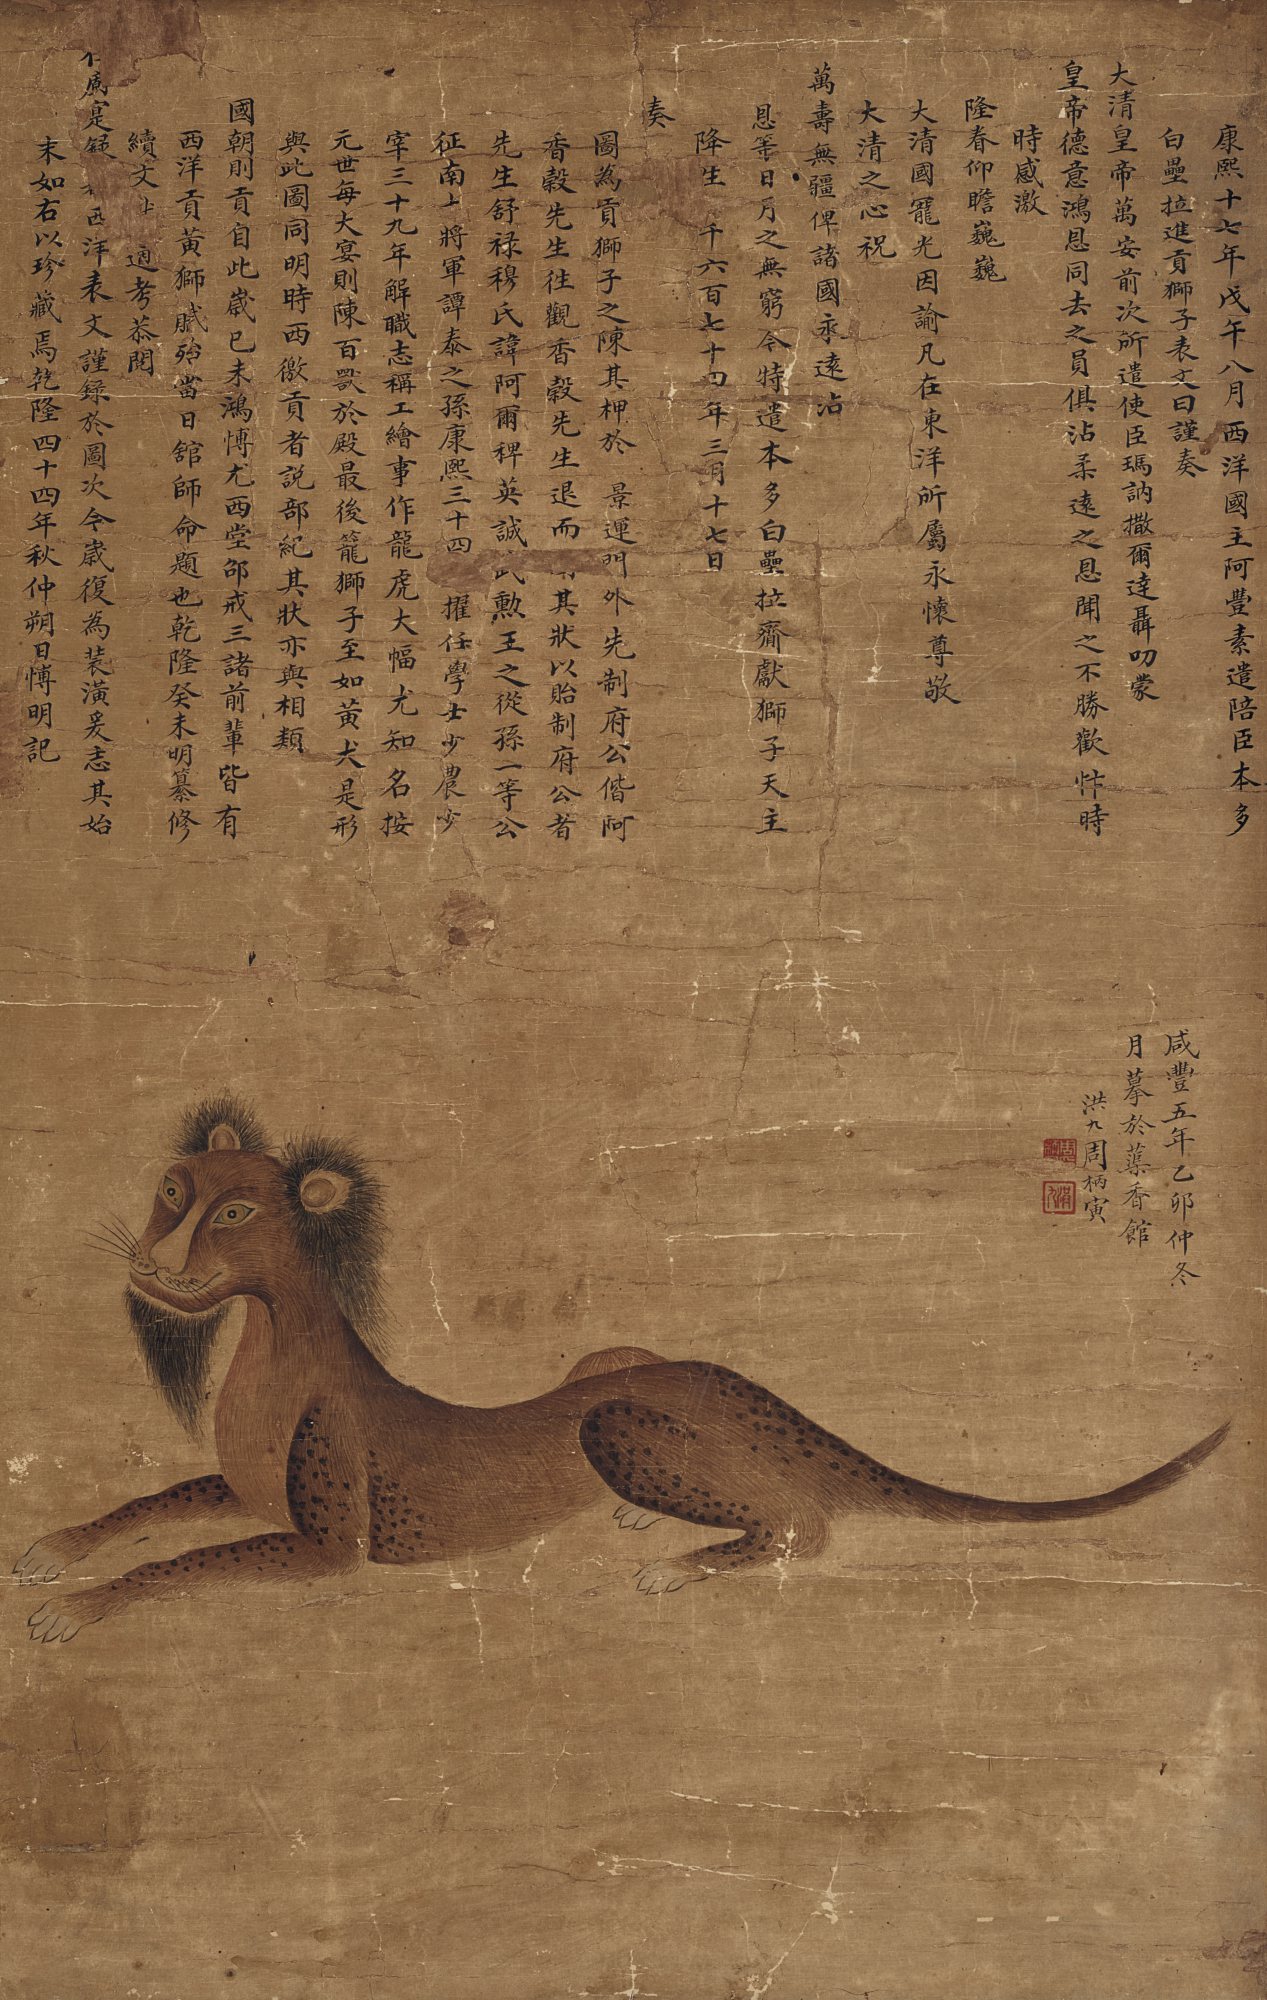 康熙十七年戊午八月西洋國主阿豐素遣陪臣本多
白壘拉進貢獅子表文曰謹奏
大清皇帝萬安前次所遣使臣瑪訥撒爾達聶叨蒙
皇帝德意鴻恩同去之員俱沾柔遠之恩聞之不勝歡忭時
時感激
隆春仰瞻巍巍
大清國寵光因諭凡在東洋所屬永懷尊敬
大清之心祝
萬壽無疆俾諸國永遠沾
恩等日月之無窮今特遣本多白壘拉齎獻獅子天主
降生一千六百七十四年三月十七日
奏
圖為貢獅子之陳其柙於景運門外先制府公偕阿
香穀先生往觀香穀先生退而其狀以貽制府公者
先生舒祿穆氏諱阿爾稗英誠武勲王之從孫一等公
征南上將軍譚泰之孫康熙三十四擢任學士少農少
宰三十九年解職志稱工繪事作龍虎大幅尤知名按
元世每大宴則陳百獸於殿最後籠獅子至如黃犬是形
與此圖同明時西徼貢者説部紀其狀亦與相類
國朝則貢自此歲已未鴻博尤西堂邵戒三諸前輩皆有
西洋貢黃獅賦殆當日舘師命題也乾隆癸未明纂修
續文適考恭閱
實錄西洋表文謹錄於圖次今歲復為装潢爰志其始
末如右以珍藏焉乾隆四十四年秋仲朔日博明記
咸豐五年乙卯仲冬
月摹於蘂香館
洪九周柄寅